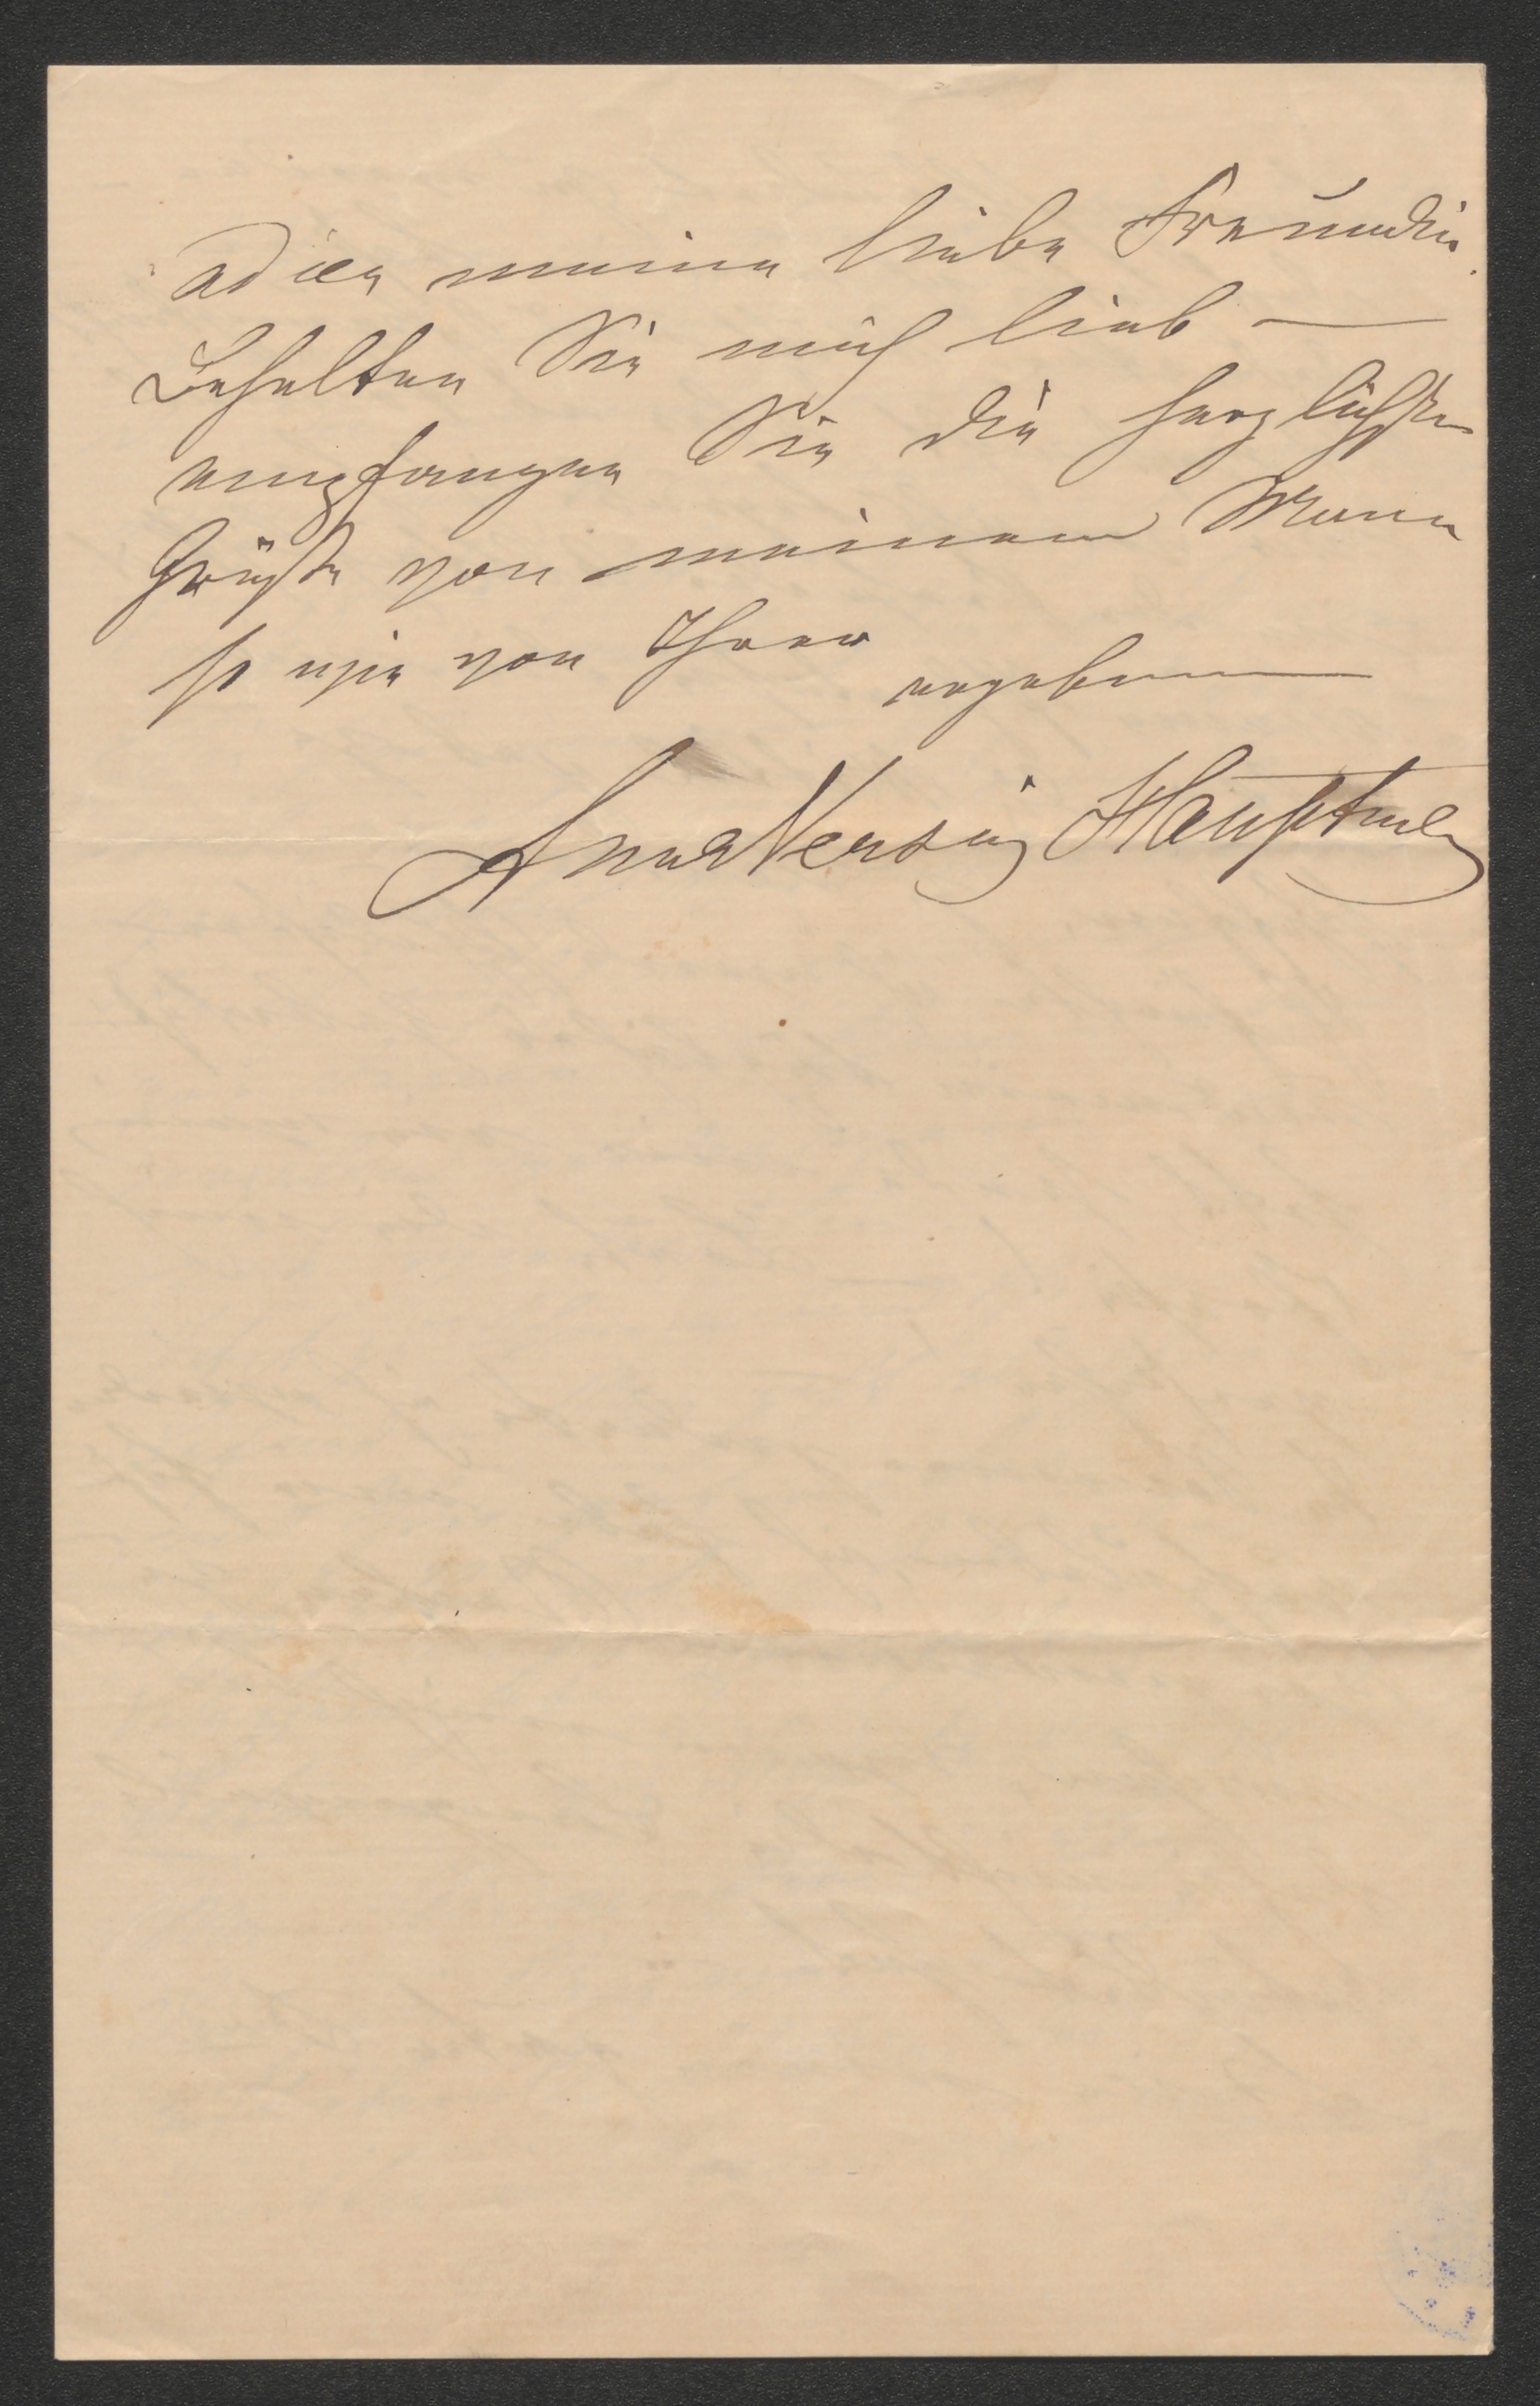 adieu meine liebe Freundin.
Behalten Sie mich lieb —
empfangen Sie die herzlichsten
Grüße von meinem Mann
so wie von Ihrer
ergebenen
Anna Versing Hauptmann